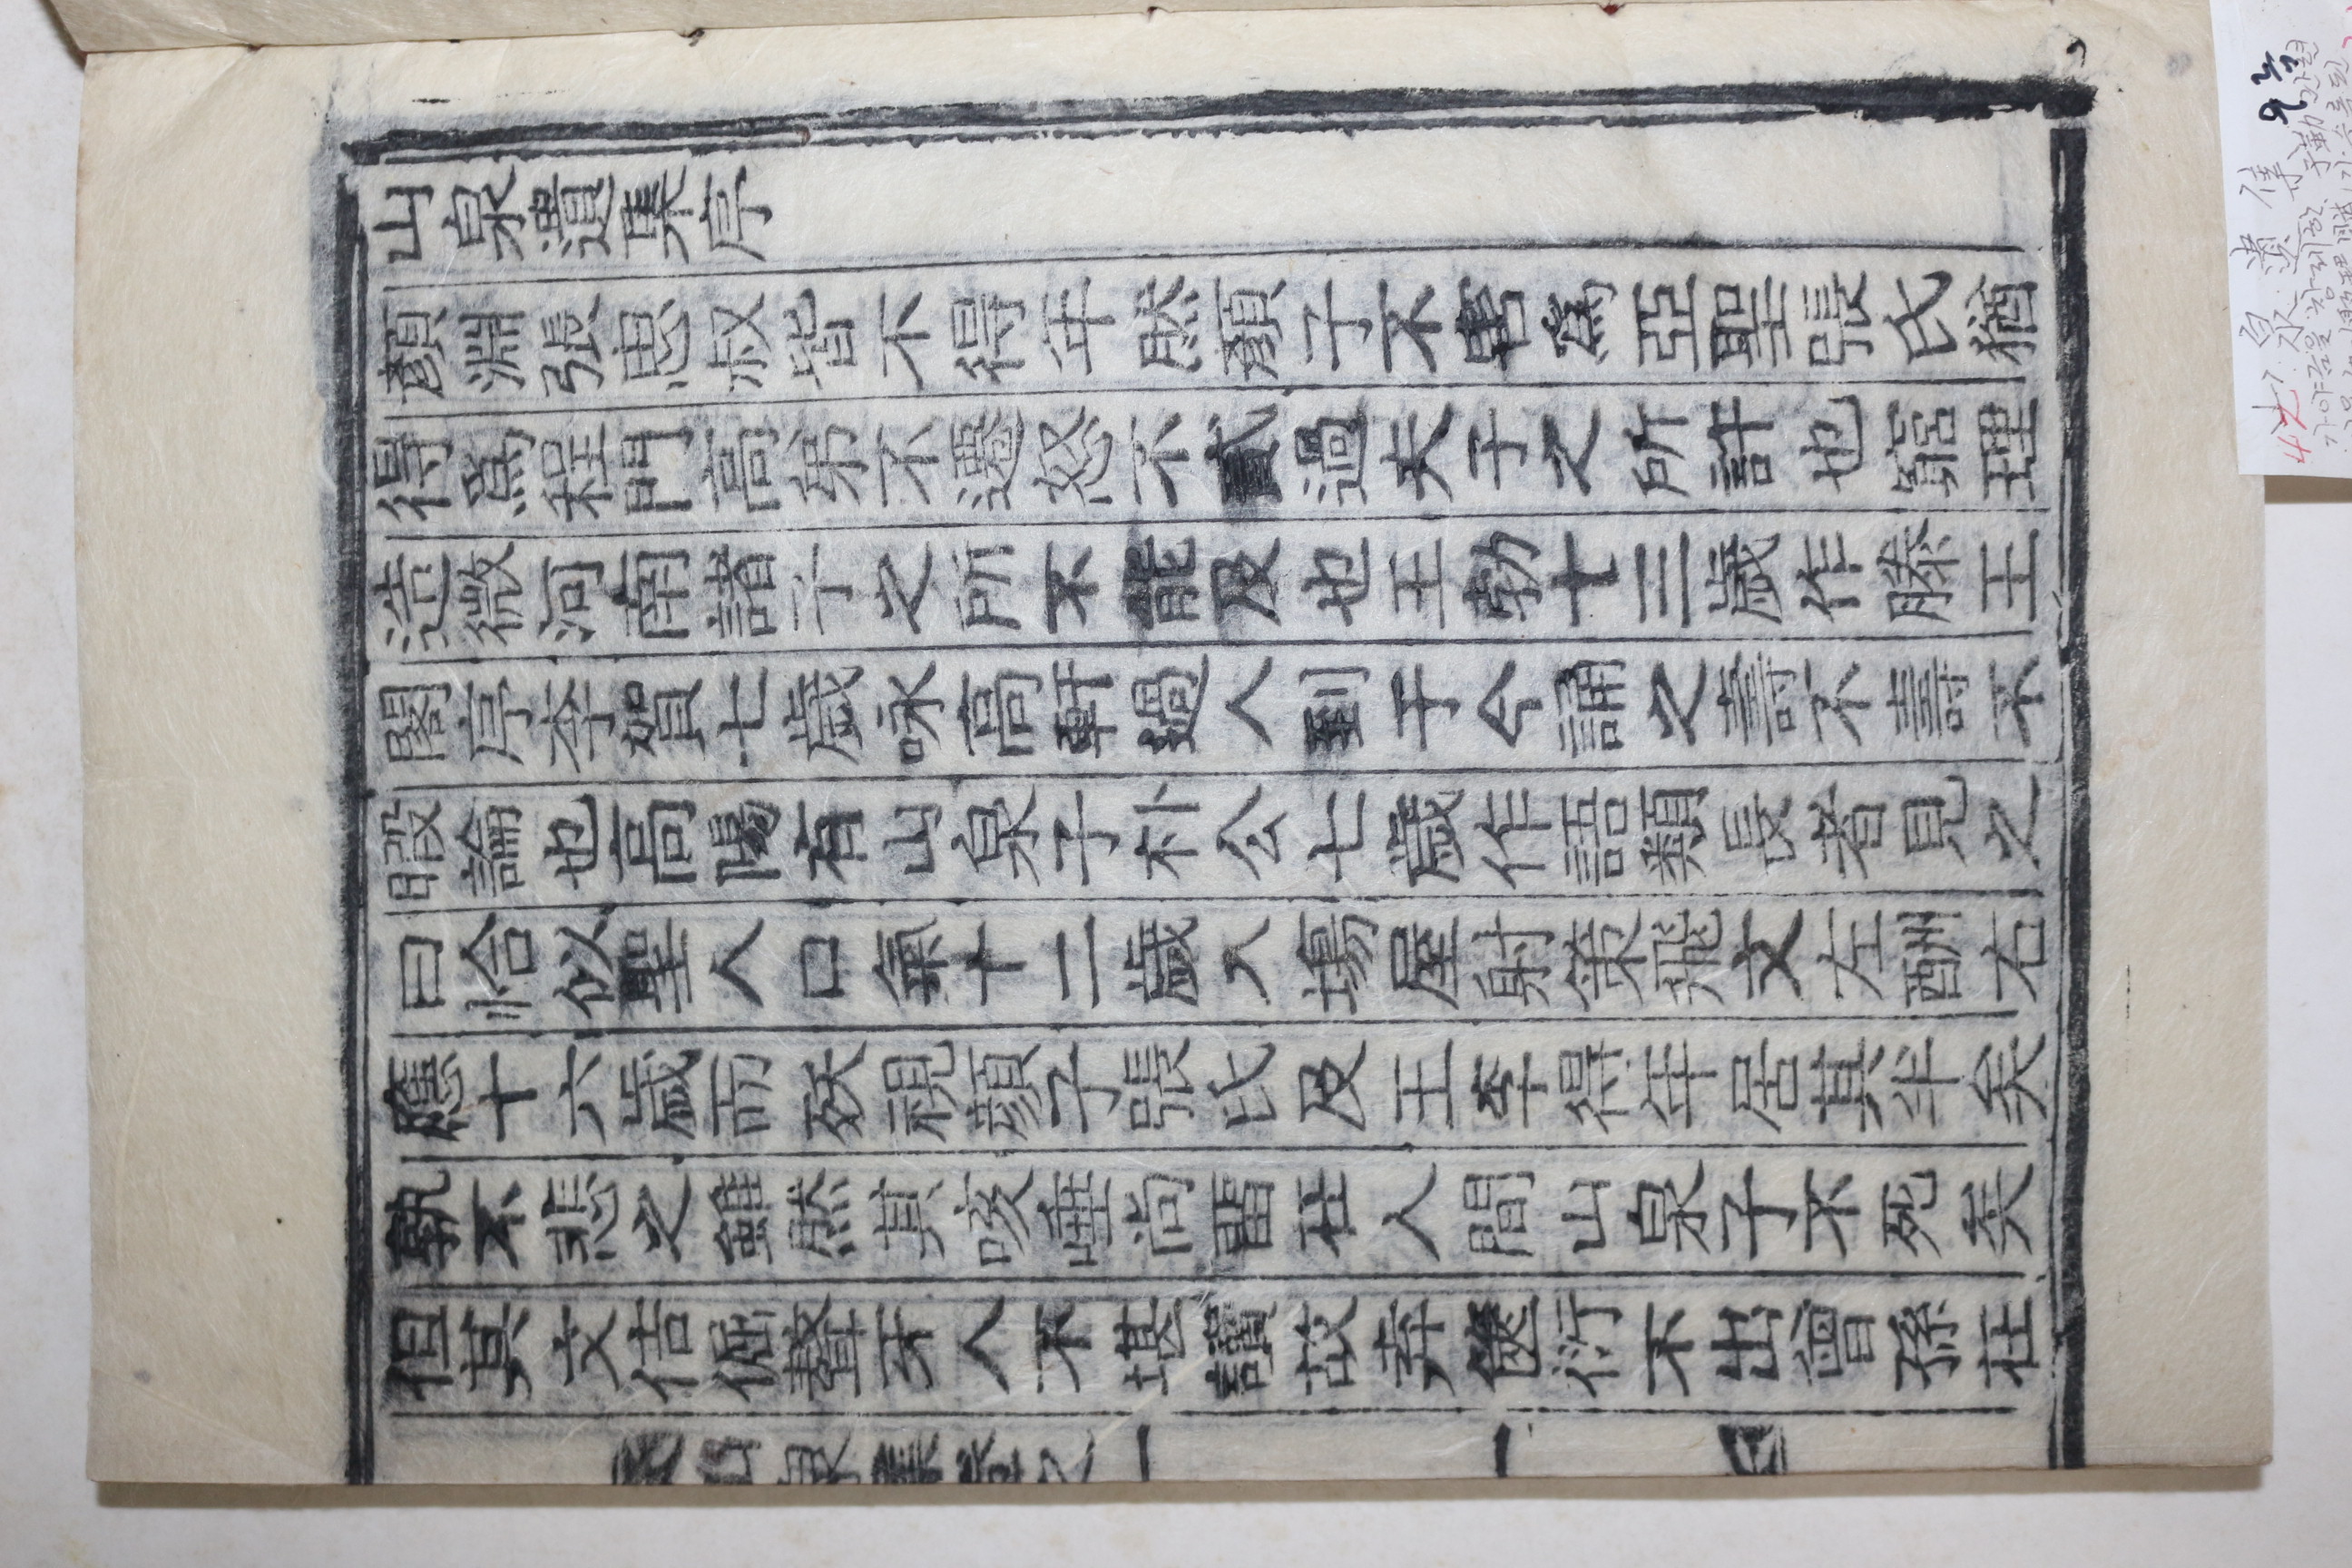 山泉遺集序
顏淵張思叔皆不得年然顏子不害爲亞聖張氏猶
得爲程門高弟不遷怒不貳過夫子之所許也窮理
造微河南諸子之所不能及也王勃十三歲作滕王
閣序李賀七歲咏高軒過人到于今誦之壽不壽不
暇論也高陽有山泉子朴公七歲作語類長者見之
曰恰似聖人口氣十二歲入塲屋射策飛文左酬右
應十六歲而殀視顔子張氏及王李得年居其半矣
孰不悲之雖然其咳唾尚畱在人間山泉子不死矣
但其文佶倔聱牙人不堪讀故弆篋衍不出曾孫在
山泉集卷之一
一
山泉遺集 우륵
가야금을 창제한 于勒 관련